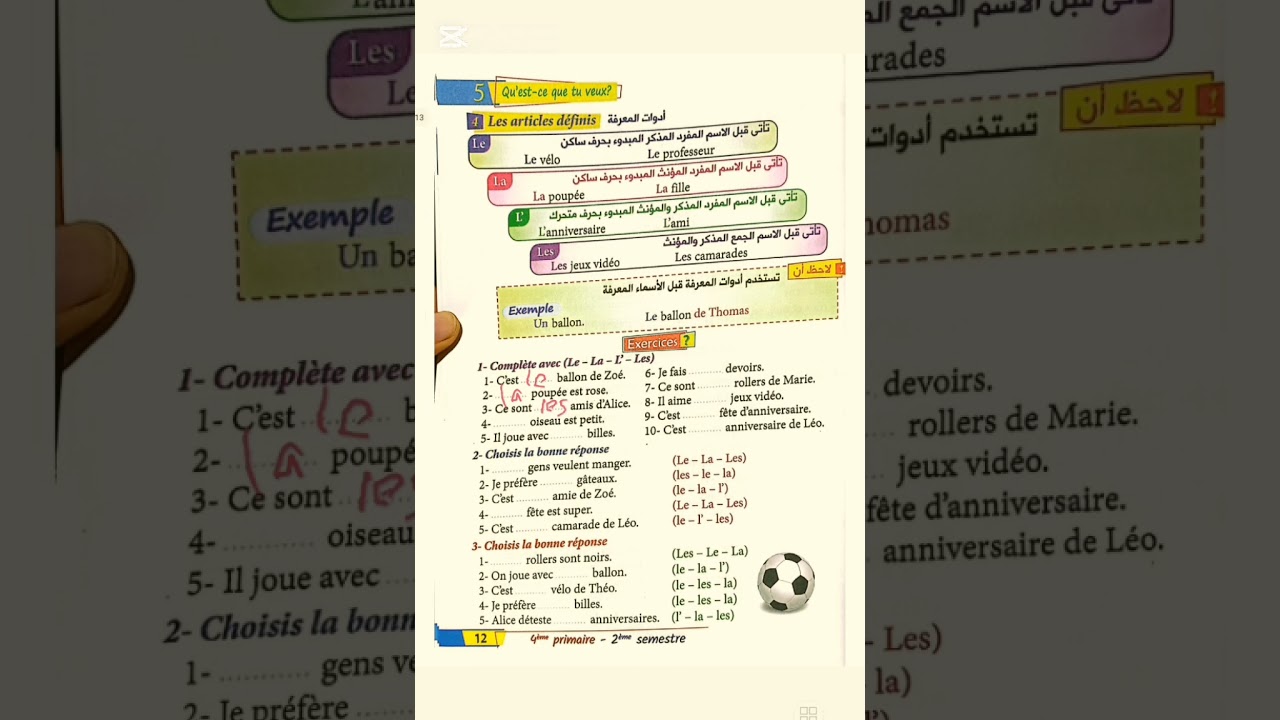 5 Qu'est-ce que tu veux?
13
4 Les articles définis أدوات المعرفة
Le تأتى قبل الاسم المفرد المذكر المبدوء بحرف ساكن
Le vélo Le professeur
La تأتى قبل الاسم المفرد المؤنث المبدوء بحرف ساكن
La poupée La fille
L' تأتى قبل الاسم المفرد المذكر والمؤنث المبدوء بحرف متحرك
L'anniversaire L'ami
Les تأتى قبل الاسم الجمع المذكر والمؤنث
Les jeux vidéo Les camarades
لاحظ أن ! تستخدم أدوات المعرفة قبل الأسماء المعرفة
Exemple
Un ballon. Le ballon de Thomas
Exercices ?
1- Complète avec (Le – La – L' – Les)
1- C'est le ballon de Zoé.
2- la poupée est rose.
3- Ce sont les amis d'Alice.
4- .......... oiseau est petit.
5- Il joue avec .......... billes.
6- Je fais .......... devoirs.
7- Ce sont .......... rollers de Marie.
8- Il aime .......... jeux vidéo.
9- C'est .......... fête d'anniversaire.
10- C'est .......... anniversaire de Léo.
2- Choisis la bonne réponse
1- .......... gens veulent manger. (Le – La – Les)
2- Je préfère .......... gâteaux. (les – le – la)
3- C'est .......... amie de Zoé. (le – la – l')
4- .......... fête est super. (Le – La – Les)
5- C'est .......... camarade de Léo. (le – l' – les)
3- Choisis la bonne réponse
1- .......... rollers sont noirs. (Les – Le – La)
2- On joue avec .......... ballon. (le – la – l')
3- C'est .......... vélo de Théo. (le – les – la)
4- Je préfère .......... billes. (le – les – la)
5- Alice déteste .......... anniversaires. (l' – la – les)
12 4ème primaire - 2ème semestre